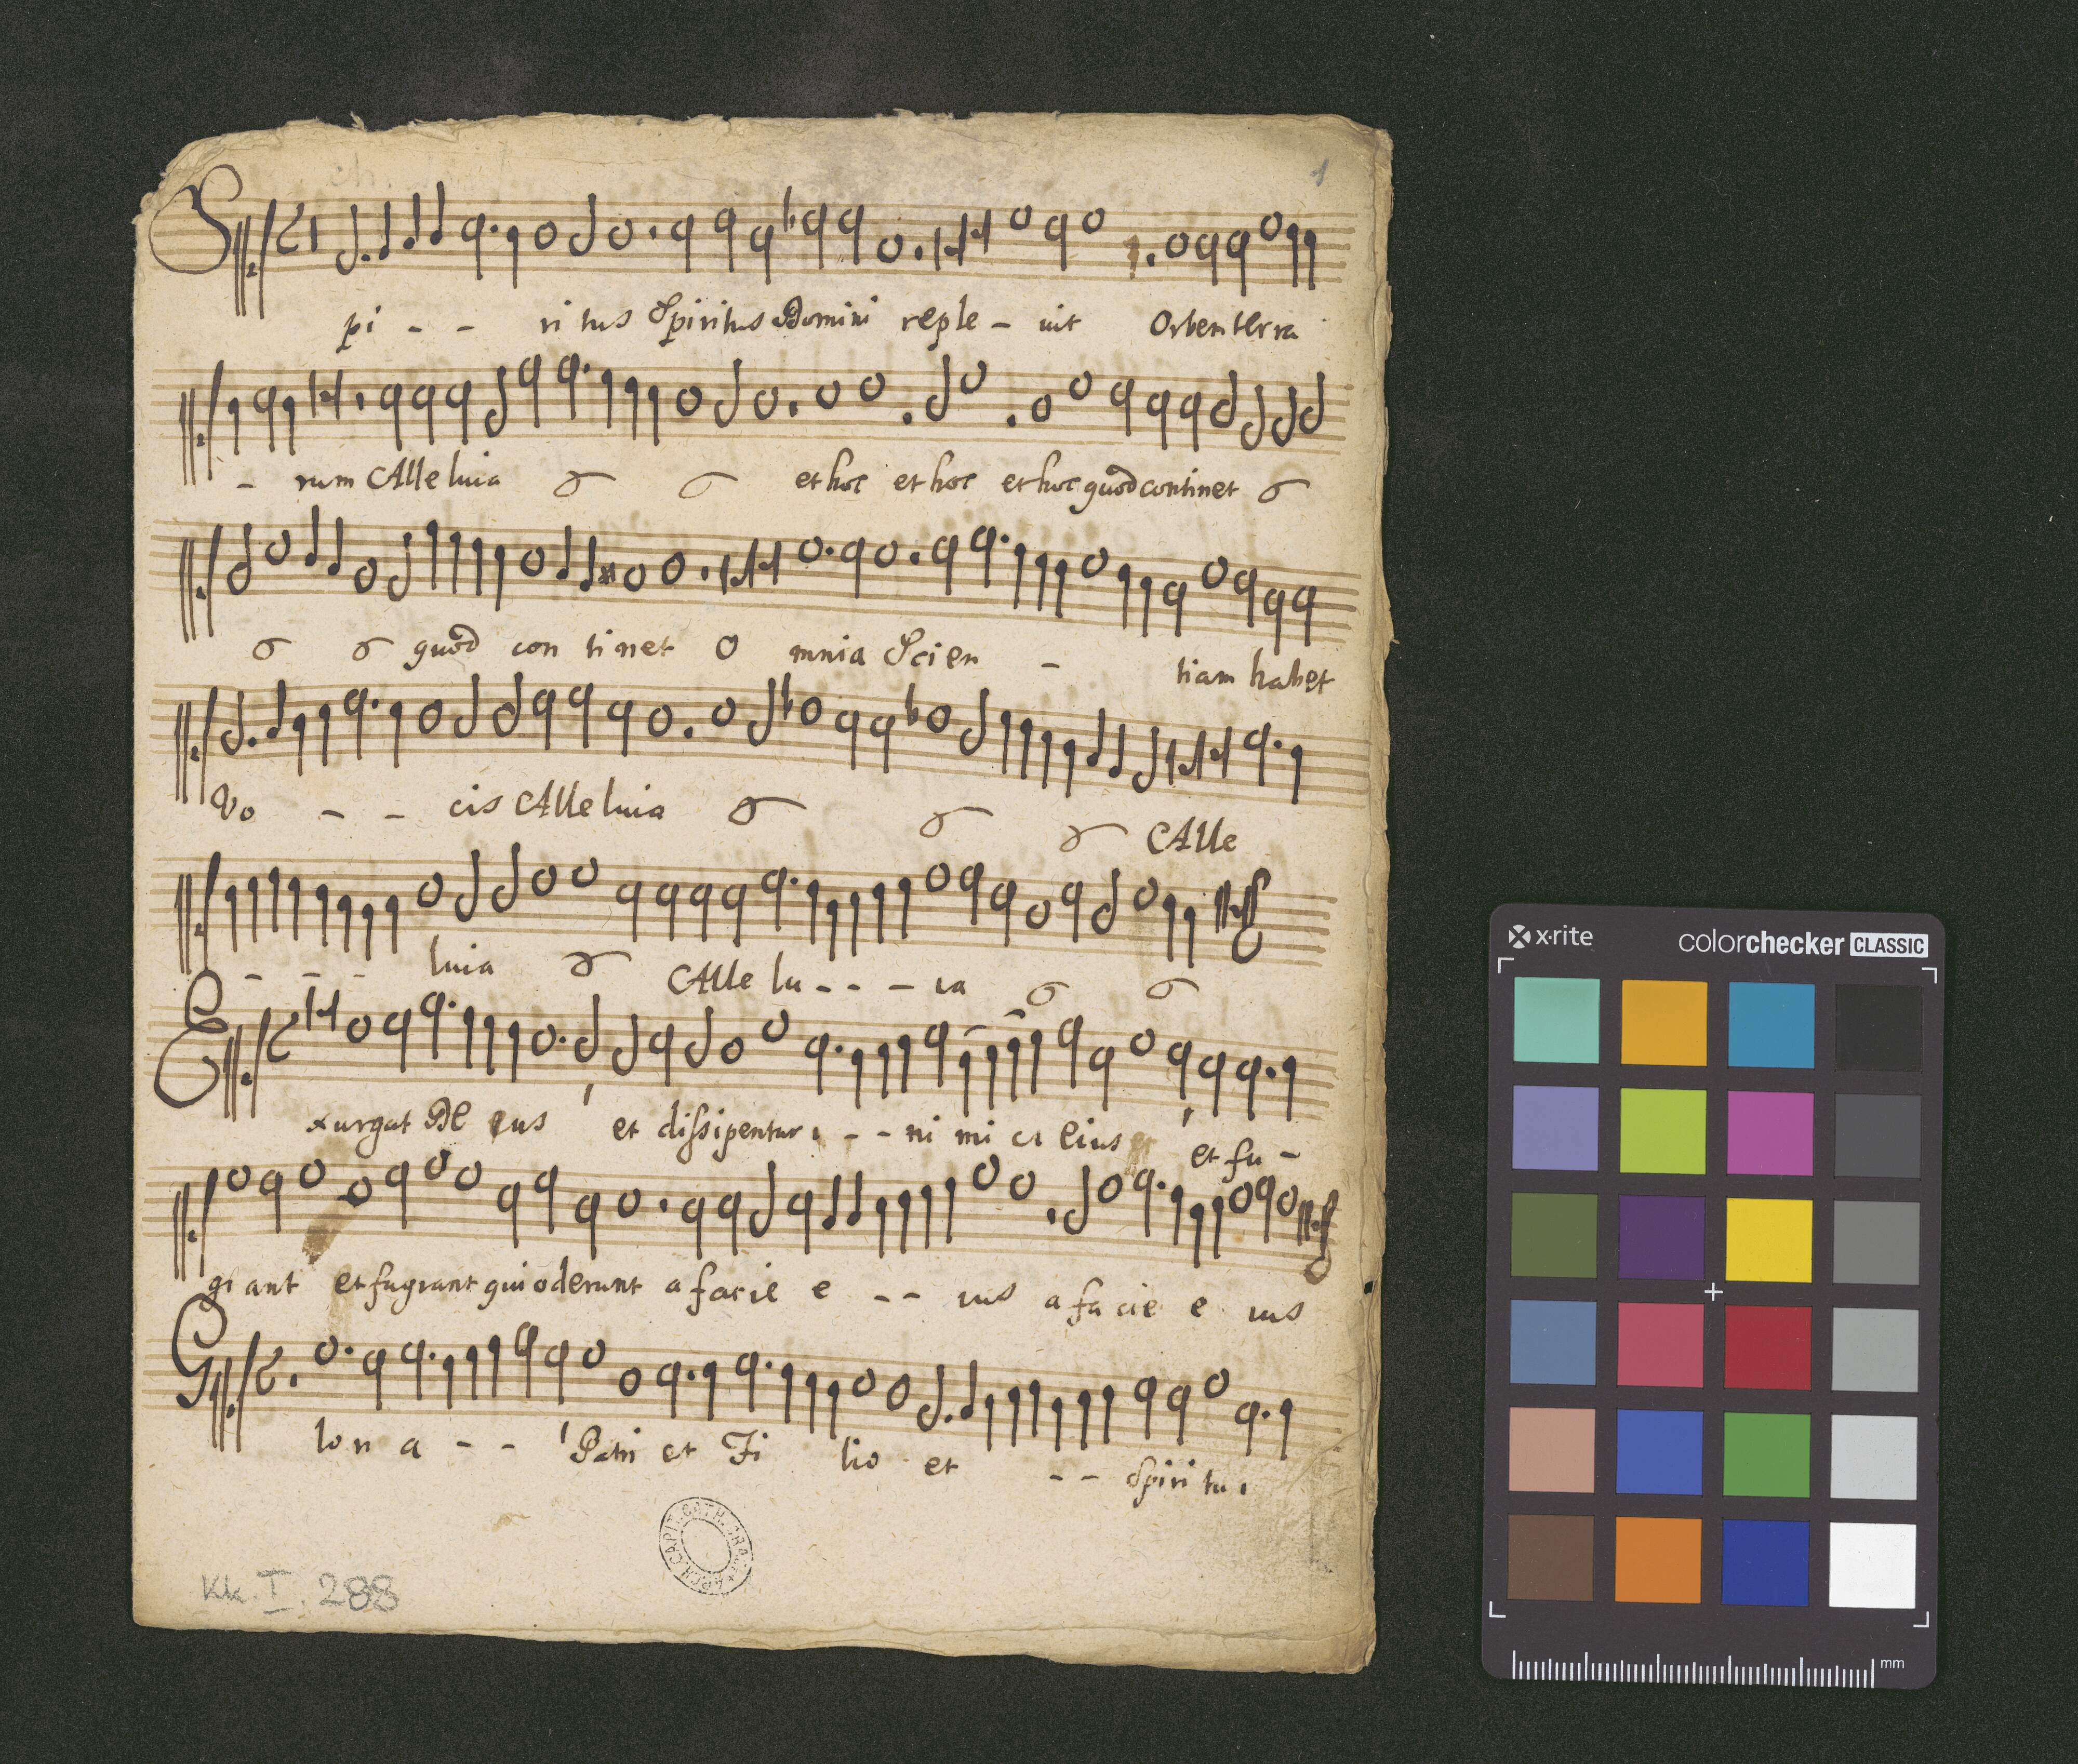 1
Spi - - ri tus Spiritus Domini reple - uit Orbem terra
- rum Alleluia et hoc et hoc et hoc quod continet
quod con tinet O mnia Scien - tiam habet
Vo - - cis Alleluia Alle
- - - luia Alle lu - - - ia
Exurgat De eus et dissipentur i - - ni mi ci eius et fu -
gi ant et fugiant qui oderunt a facie e - - ius a fa cie e ius
Glori a - - Patri et Fi lio et - - Spiri tu i
Kk. I. 288
x-rite colorchecker CLASSIC
mm